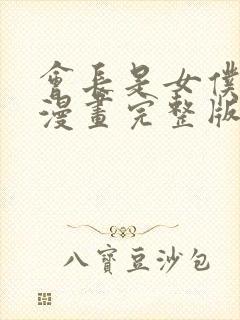 會長是女僕
漫畫完整版
八寶豆沙包